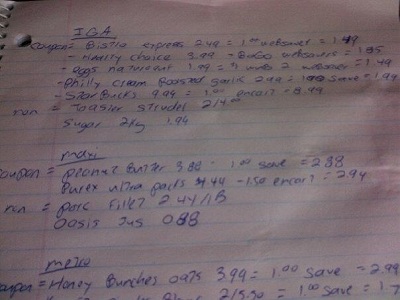 IGA
coupon = Bistro express 249 = 1.00 websaver = 1.49
- Healthy choice 3.99 - BOGO websavers = 1.95
- eggs naturegg 1.99 = websaver = 1.49
- Philly cream Roasted garlic 2.99 = 1.00 save = 1.99
- StarBucks 9.99 = 1.00 encart = 8.99
non = Toaster strudel 2/4.00
Sugar 2kg 1.94
maxi
coupon = peanut Butter 3.88 - 1.00 save = 2.88
Purex ultra packs 4.44 - 1.50 encart = 294
non = pork Fillet 2.44/lB
Oasis Jus 0.88
metro
coupon = Honey Bunches oats 3.99 = 1.00 save = 2.99
2/5.50 = 1.00 save = 1.7